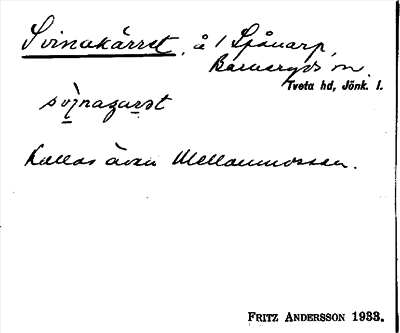 Svinakärret, å 1 Spånarp,
Barnaryds sn.
Tveta hd, Jönk. l.
svìnaꞯarət
Kallas även Mellanmossen.
FRITZ ANDERSSON 1933.